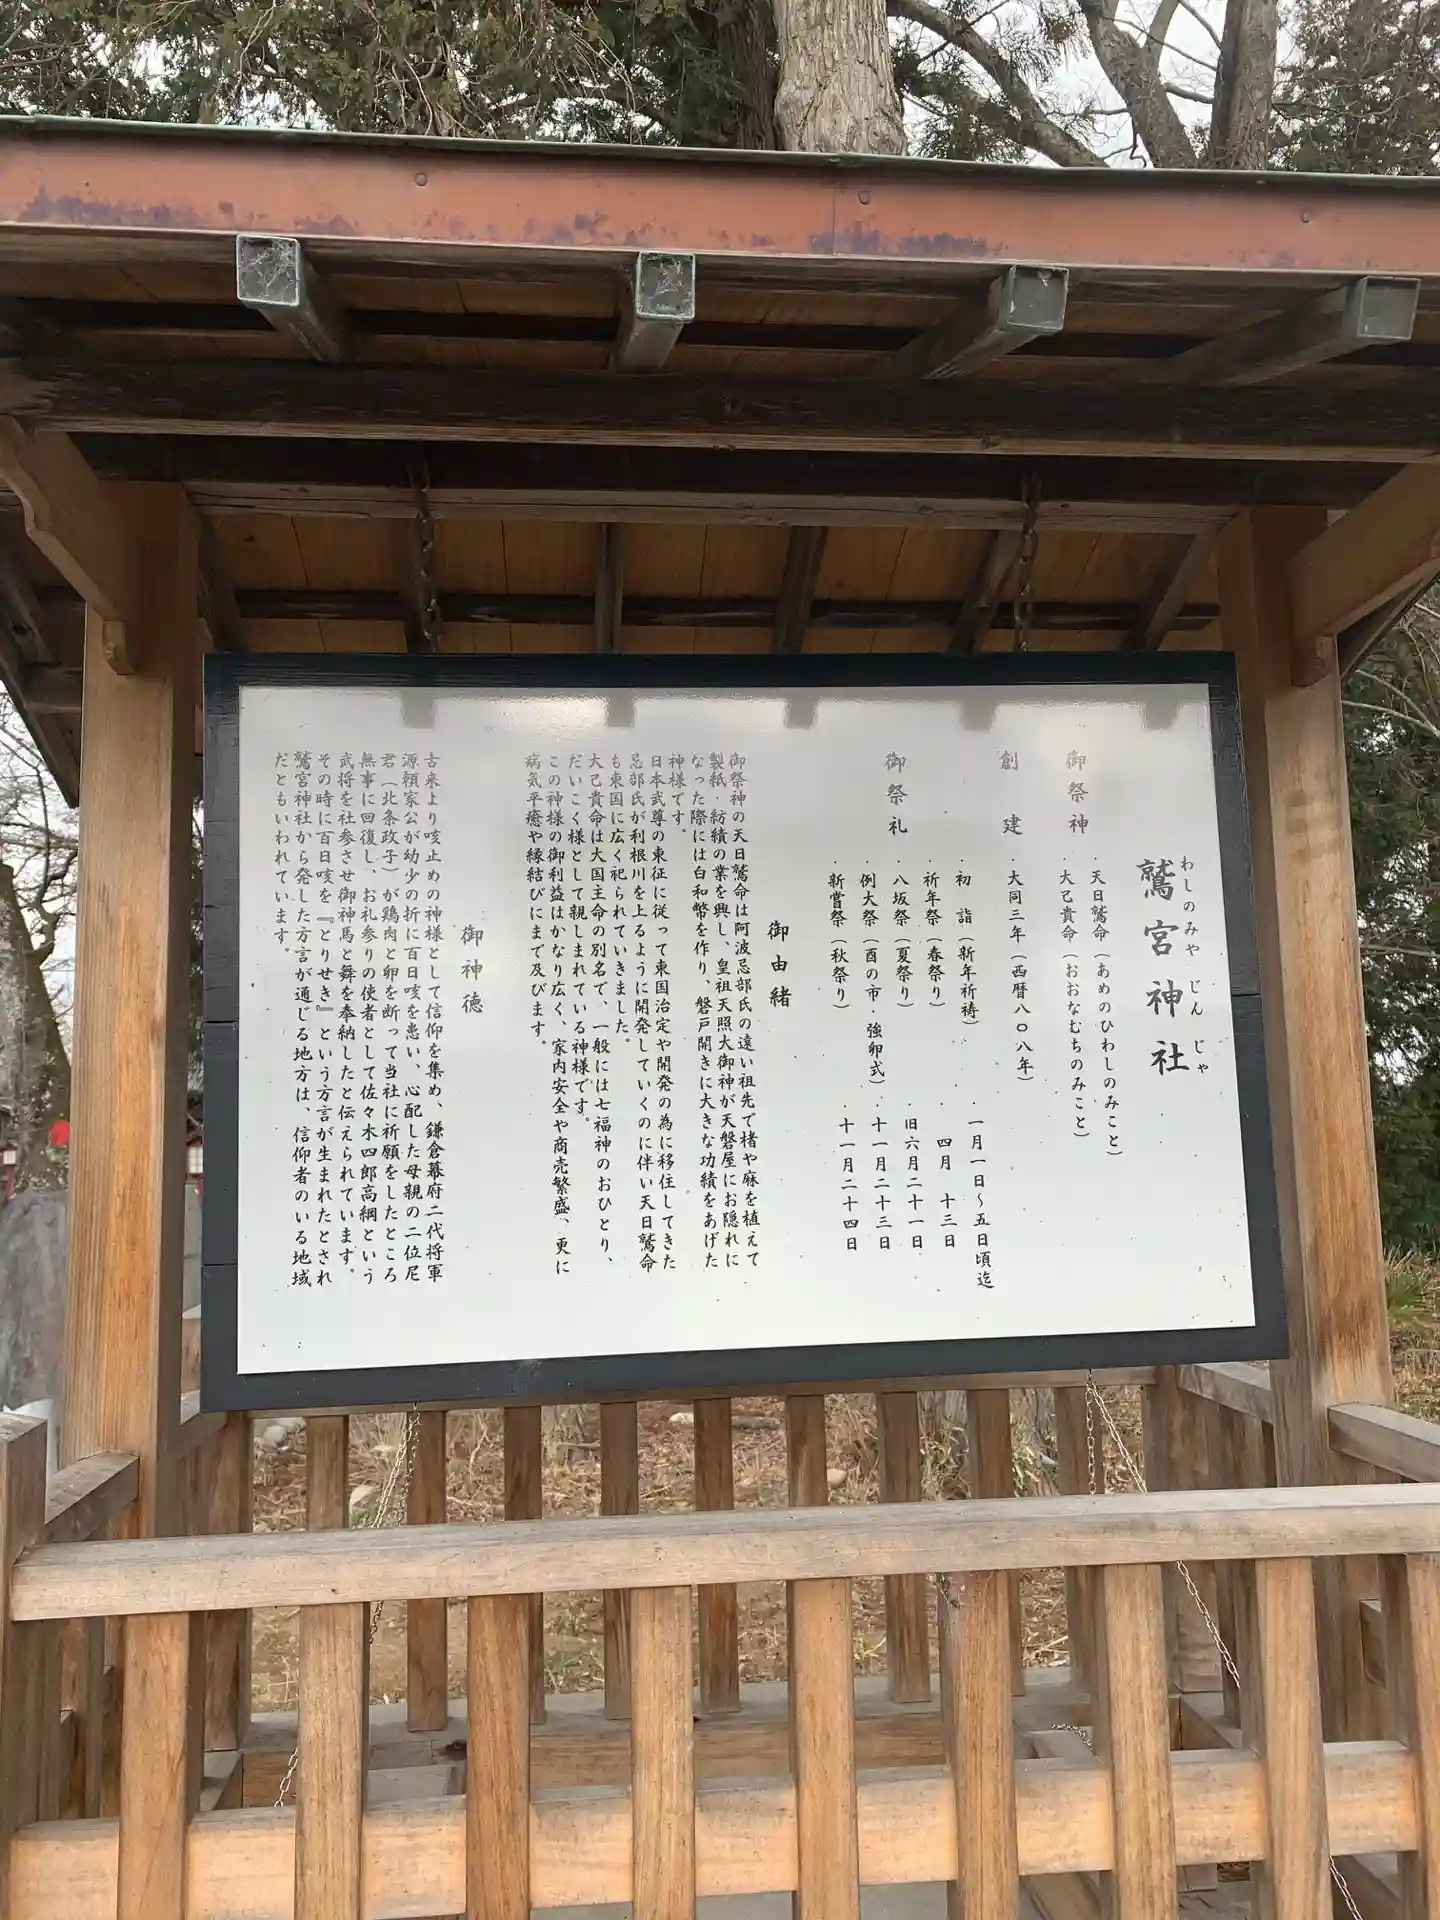 鷲宮神社
わしのみや じん じゃ
御祭神
・天日鷲命（あめのひわしのみこと）
・大己貴命（おおなむちのみこと）
創建
・大同三年（西暦八〇八年）
御祭礼
・初詣（新年祈祷）・一月一日～五日頃迄
・祈年祭（春祭り）・四月十三日
・八坂祭（夏祭り）・旧六月二十一日
・例大祭（酉の市・強卵式）・十一月二十三日
・新嘗祭（秋祭り）・十一月二十四日
御由緒
御祭神の天日鷲命は阿波忌部氏の遠い祖先で楮や麻を植えて
製紙・紡績の業を興し、皇祖天照大御神が天磐屋にお隠れに
なった際には白和幣を作り、磐戸開きに大きな功績をあげた
神様です。
日本武尊の東征に従って東国治定や開発の為に移住してきた
忌部氏が利根川を上るように開発していくのに伴い天日鷲命
も東国に広く祀られていきました。
大己貴命は大国主命の別名で、一般には七福神のおひとり、
だいこく様として親しまれている神様です。
この神様の御利益はかなり広く、家内安全や商売繁盛、更に
病気平癒や縁結びにまで及びます。
御神徳
古来より咳止めの神様として信仰を集め、鎌倉幕府二代将軍
源頼家公が幼少の折に百日咳を患い、心配した母親の二位尼
君（北条政子）が鶏肉と卵を断って当社に祈願をしたところ
無事に回復し、お礼参りの使者として佐々木四郎高綱という
武将を社参させ御神馬と舞を奉納したと伝えられています。
その時に百日咳を『とりせき』という方言が生まれたとされ
鷲宮神社から発した方言が通じる地方は、信仰者のいる地域
だともいわれています。